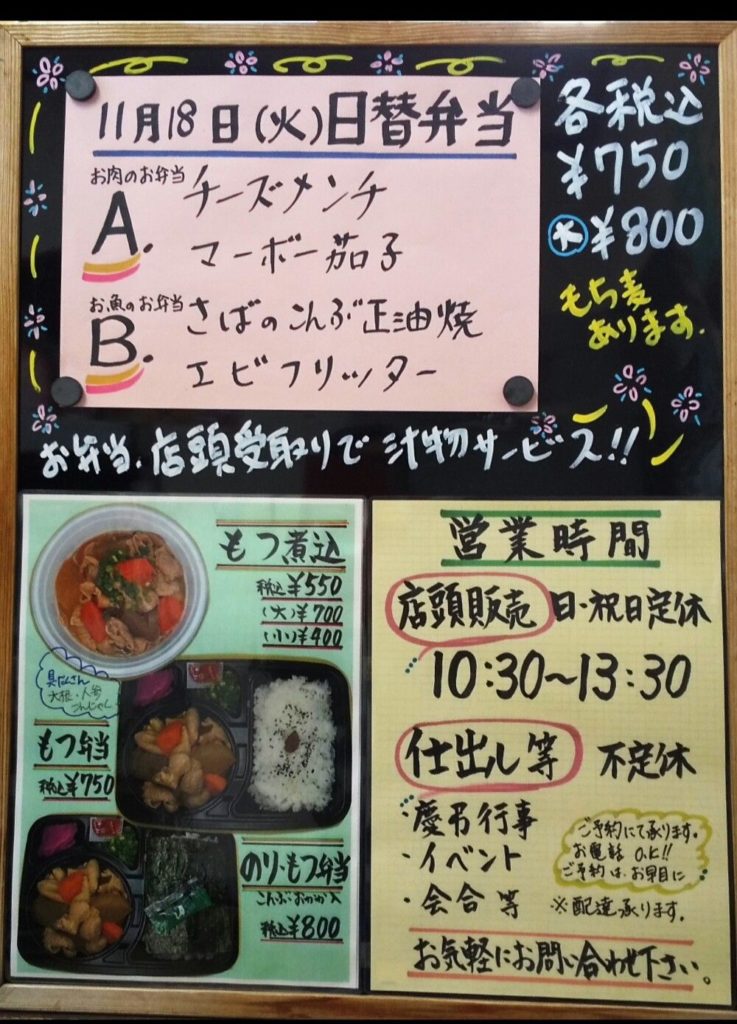 11月18日(火)日替弁当
お肉のお弁当
A.
チーズメンチ
マーボー茄子
お魚のお弁当
B.
さばのこんぶ正油焼
エビフリッター
各税込
¥750
大¥800
もち麦
あります.
お弁当、店頭受取りで汁物サービス!!
もつ煮込
税込¥550
(大)¥700
(小)¥400
具だくさん
大根・人参
こんにゃく
もつ弁当
税込¥750
のり・もつ弁当
こんぶ・おかか入
税込¥800
営業時間
店頭販売 日・祝日定休
10:30~13:30
仕出し等 不定休
・慶弔行事
・イベント
・会合等
ご予約にて承ります。
お電話 O.K!!
ご予約は、お早目に
※配達承ります。
お気軽にお問い合わせ下さい。